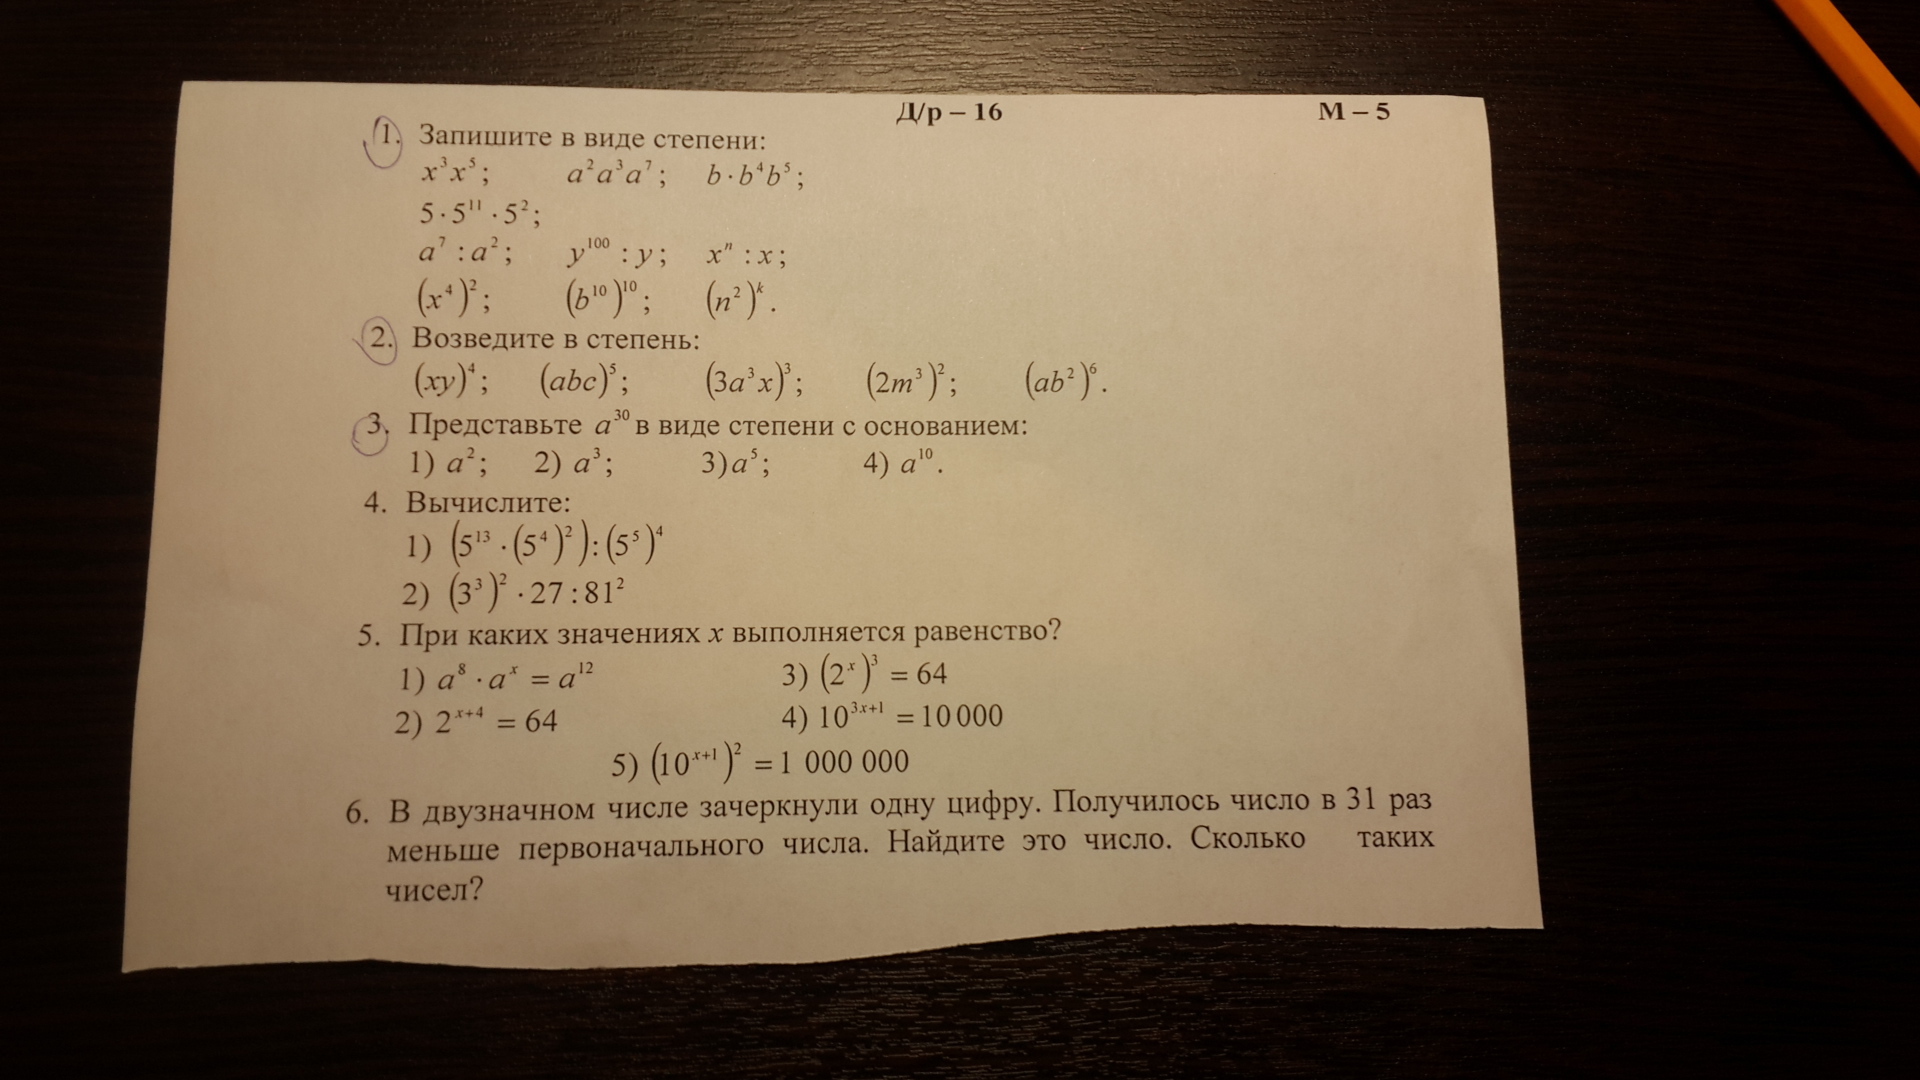 Д/р – 16 М – 5
1. Запишите в виде степени:
x³x⁵; a²a³a⁷; b·b⁴b⁵;
5·5¹¹·5²;
a⁷ : a²; y¹⁰⁰ : y; xⁿ : x;
(x⁴)²; (b¹⁰)¹⁰; (n²)ᵏ.
2. Возведите в степень:
(xy)⁴; (abc)⁵; (3a³x)³; (2m³)²; (ab²)⁶.
3. Представьте a³⁰ в виде степени с основанием:
1) a²; 2) a³; 3) a⁵; 4) a¹⁰.
4. Вычислите:
1) (5¹³·(5⁴)²):(5⁵)⁴
2) (3³)²·27:81²
5. При каких значениях x выполняется равенство?
1) a⁸·aˣ = a¹² 3) (2ˣ)³ = 64
2) 2ˣ⁺⁴ = 64 4) 10³ˣ⁺¹ = 10 000
5) (10ˣ⁺¹)² = 1 000 000
6. В двузначном числе зачеркнули одну цифру. Получилось число в 31 раз
меньше первоначального числа. Найдите это число. Сколько таких
чисел?